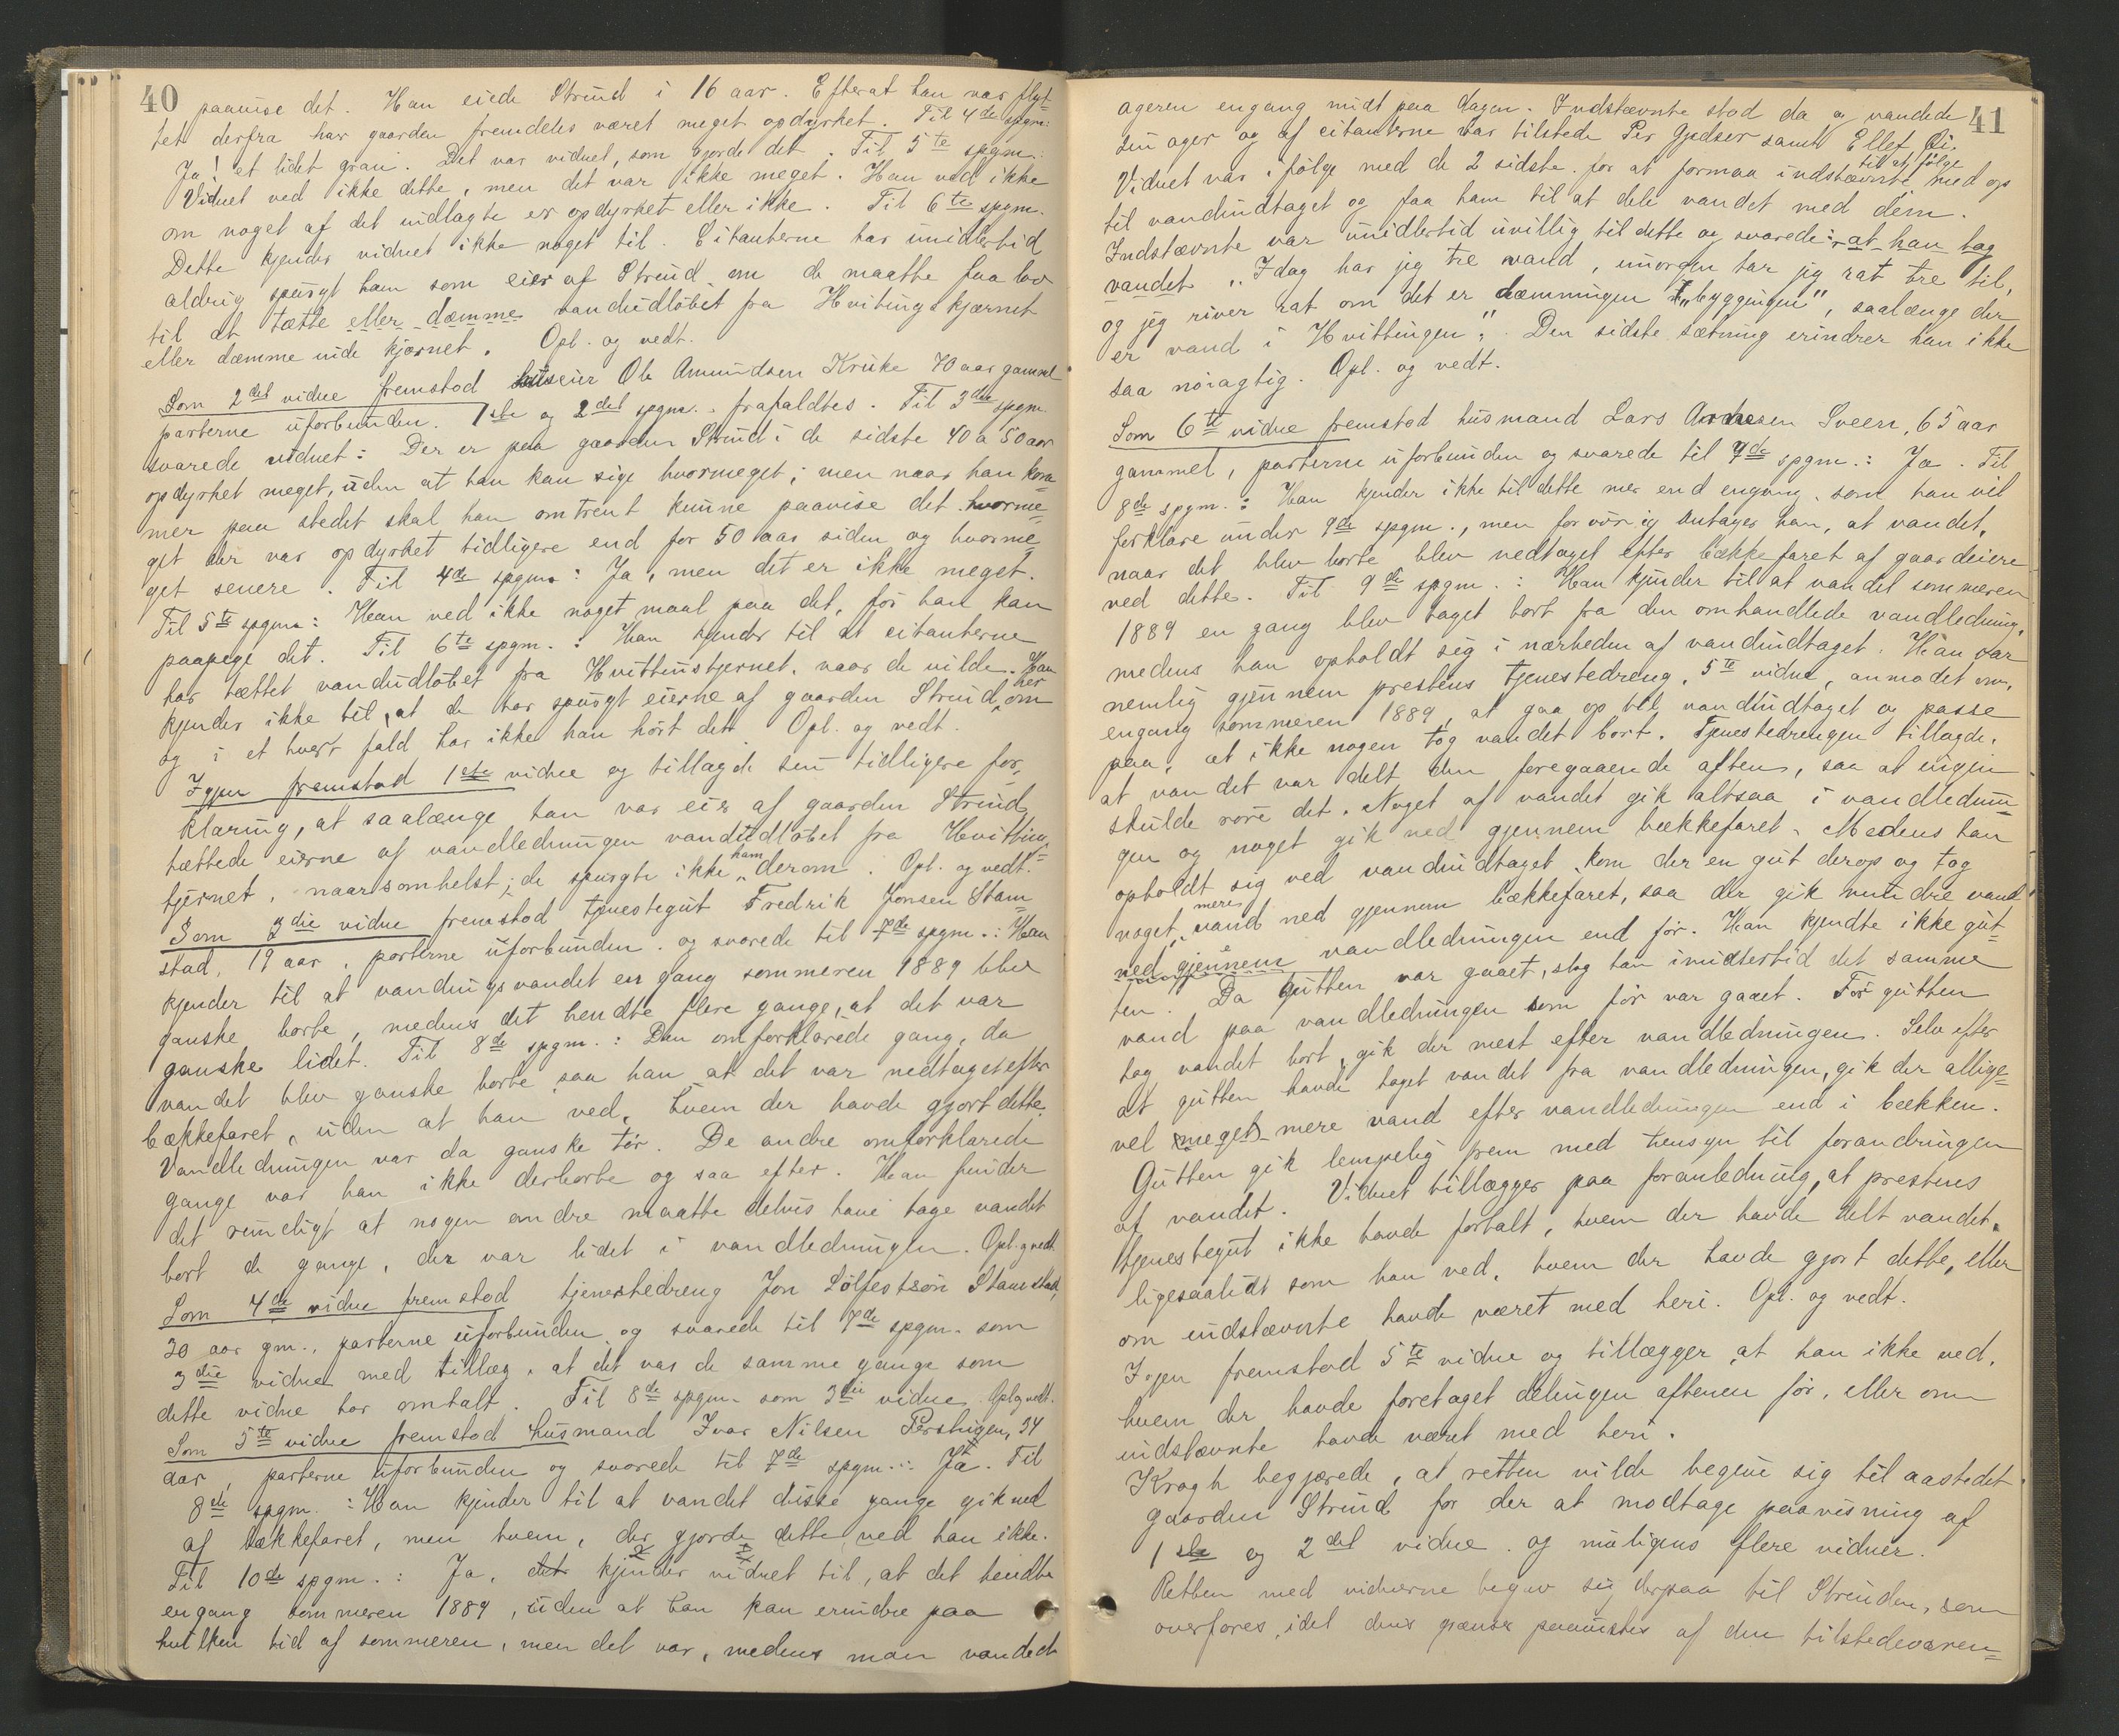 40
paavise det. Han eiede Strind i 16 aar. Efterat han var flyt-
tet derfra har gaarden fremdeles været meget opdyrket. Til 4de spgm:
Ja! et lidet gran. Det var vidnet, som gjorde det. Til 5te spgm.:
Vidnet ved ikke dette, men det var ikke meget. Han ved ikke
om noget af det indlagte er opdyrket eller ikke. Til 6te spgm.
Dette kjender vidnet ikke noget til. Citanterne har imidlertid
aldrig spurgt ham som eier af Strind om de maatte faa lov
til at tætte eller dæmme vandudløbet fra Hvitingskjærnet
eller dæmme inde kjærnet. Opl. og vedt.
Som 2det vidne fremstod huseier Ole Amundsen Kruke 70 aar gammel
parterne uforbunden. 1ste og 2det spgm. frafaldtes. Til 3die spgm.
svarede vidnet: Der er paa gaarden Strind i de sidste 40 a 50 aar
opdyrket meget, uden at han kan sige hvormeget; men naar han kom-
mer paa stedet skal han omtrent kunne paavise det hvorme-
get der var opdyrket tidligere end for 50 aar siden og hvorme-
get senere. Til 4de spgm.: Ja, men det er ikke meget.
Til 5te spgm.: Han ved ikke noget maal paa det, før han kan
paapege det. Til 6te spgm.: Han kjender til at citanterne
har tættet vandudløbet fra Hvittinstjernet, naar de vilde. Han
kjender ikke til, at de har spurgt eierne af gaarden Strind her om
og i et hvert fald har ikke han hørt det. Opl. og vedt.
Igjen fremstod 1ste vidne og tillagde sin tidligere for-
klaring, at saalænge han var eier af gaarden Strind
tættede eierne af vandledningen vandudløbet fra Hvitting-
tjernet, naarsomhelst; de spurgte ikke ham derom. Opl. og vedt.
Som 3die vidne fremstod tjenestegut Fredrik Jonsen Stam-
stad, 19 aar, parterne uforbunden og svarede til 7de spgm.: Han
kjender til at vandingsvandet en gang sommeren 1889 blev
ganske borte, medens det hendte flere gange, at det var
ganske lidet. Til 8de spgm.: Den omforklarede gang, da
vandet blev ganske borte saa han at det var nedtaget efter
bækkefaret, uden at han ved, hvem der havde gjort dette.
Vandledningen var da ganske tør. De andre omforklarede
gange var han ikke derborte og saa efter. Han finder
det rimeligt at nogen andre maatte delvis have tage vandet
bort de gange, der var lidet i vandledningen. Opl. og vedt.
Som 4de vidne fremstod tjenestedreng Jon Sølfestsøn Stamstad,
20 aar gm., parterne uforbunden og svarede til 7de spgm. som
3die vidne med tillæg, at det var de samme gange som
dette vidne har omtalt. Til 8de spgm. som 3die vidne. Opl og vedt.
Som 5te vidne fremstod husmand Ivar Nilsen Perstuigen, 34
aar, parterne uforbunden og svarede til 7de spgm.: Ja. Til
8de spgm.: Han kjender til at vandet disse gange gik ned
af bækkefaret, men hvem, der gjorde dette ved han ikke.
Til 10de spgm.: Ja, det kjender vidnet til, at det hendte
engang sommeren 1889, uden at han kan erindre paa
hvilken tid af sommeren, men det var, medens man vandede
41
ageren engang midt paa dagen. Indstævnte stod da og vandede
sin ager og af citanterne var tilstede Per Gjedser samt Ellef
Vidnet var i følge med de 2 sidste for at formaa indstævnte til at følge med op
til vandindtaget og faa ham til at dele vandet med dem.
Indstævnte var imidlertid uvillig til dette og svarede: at han tog
vandet „Idag har jeg tre vand, imorgen tar jeg rat tre til,
og jeg river rat om det er dæmningen „byggingen", saalænge der
er vand i Hvittingen". Den sidste sætning erindrer han ikke
saa nøiagtig. Opl. og vedt.
Som 6te vidne fremstod husmand Lars Arnesen Sveen, 65 aar
gammel, parterne uforbunden og svarede til 7de spgm.: Ja. Til
8de spgm.: Han kjender ikke til dette mer end engang, som han vil
forklare under 9de spgm., men forøvrig antager han, at vandet,
naar det blev borte blev nedtaget efter bækkefaret af gaardeiere
ved dette. Til 9de spgm.: Han kjender til at vandet sommeren
1889 en gang blev taget bort fra den omhandlede vandledning,
medens han opholdt sig i nærheden af vandindtaget. Han var
nemlig gjennem prestens tjenestedreng, 5te vidne, anmodet om,
engang sommeren 1889, at gaa op til vandindtaget og passe
paa, at ikke nogen tog vandet bort. Tjenestedrengen tillagde,
at vandet var delt den foregaaende aften, saa at ingen
skulde røre det. Noget af vandet gik altsaa i vandlednin-
gen og noget gik ned gjennem bækkefaret. Medens han
opholdt sig ved vandindtaget kom der en gut derop og tog
noget mere vand ned gjennem bækkefaret, saa der gik mindre vand
ned gjennem vandledningen end før. Han kjendte ikke gut-
ten. Da gutten var gaaet, slog han imidlertid det samme
vand paa vandledningen som før var gaaet. Før gutten
tog vandet bort, gik der mest efter vandledningen. Selv efter
at gutten havde taget vandet fra vandledningen, gik der allige-
vel meget mere vand efter vandledningen end i bækken.
Gutten gik lempelig frem med hensyn til forandringen
af vandet. Vidnet tillægger paa foranledning, at prestens
tjenestegut ikke havde fortalt, hvem der havde delt vandet,
ligesaalidt som han ved, hvem der havde gjort dette, eller
om indstævnte havde været med heri. Opl. og vedt.
Igjen fremstod 5te vidne og tillægger at han ikke ved,
hvem der havde foretaget delingen aftenen før, eller om
indstævnte havde været med heri.
Krogh begjærede, at retten vilde begive sig til aastedet
gaarden Strind for der at modtage paavisning af
1ste og 2det vidne og muligens flere vidner.
Retten med vidnerne begav sig derpaa til Strinden, som
overfores, idet dens grænser paavistes af den tilstedeværen-